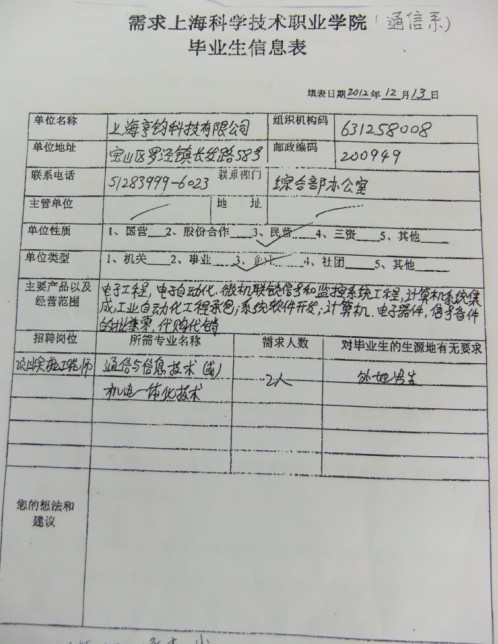 需求上海科学技术职业学院(通信系)
毕业生信息表
填表日期2012年12月13日
单位名称 上海亨钧科技有限公司 组织机构码 631258008
单位地址 宝山区罗泾镇长发路58号 邮政编码 200949
联系电话 51283999-6023 联系部门 综合部办公室
主管单位 地 址
单位性质 1、国营 2、股份合作 3、民营 4、三资 5、其他
单位类型 1、机关 2、事业 3、企业 4、社团 5、其他
主要产品以及 电子工程,电气自动化,微机联锁信号和监控系统工程,计算机系统集
经营范围 成,工业自动化工程承包;系统软件开发;计算机、电子器件、信号备件
的批兼零、代购代销
招聘岗位 所需专业名称 需求人数 对毕业生的生源地有无要求
实施工程师 通信与信息技术(或) 2人 外地考生
机电一体化技术
您的想法和
建议